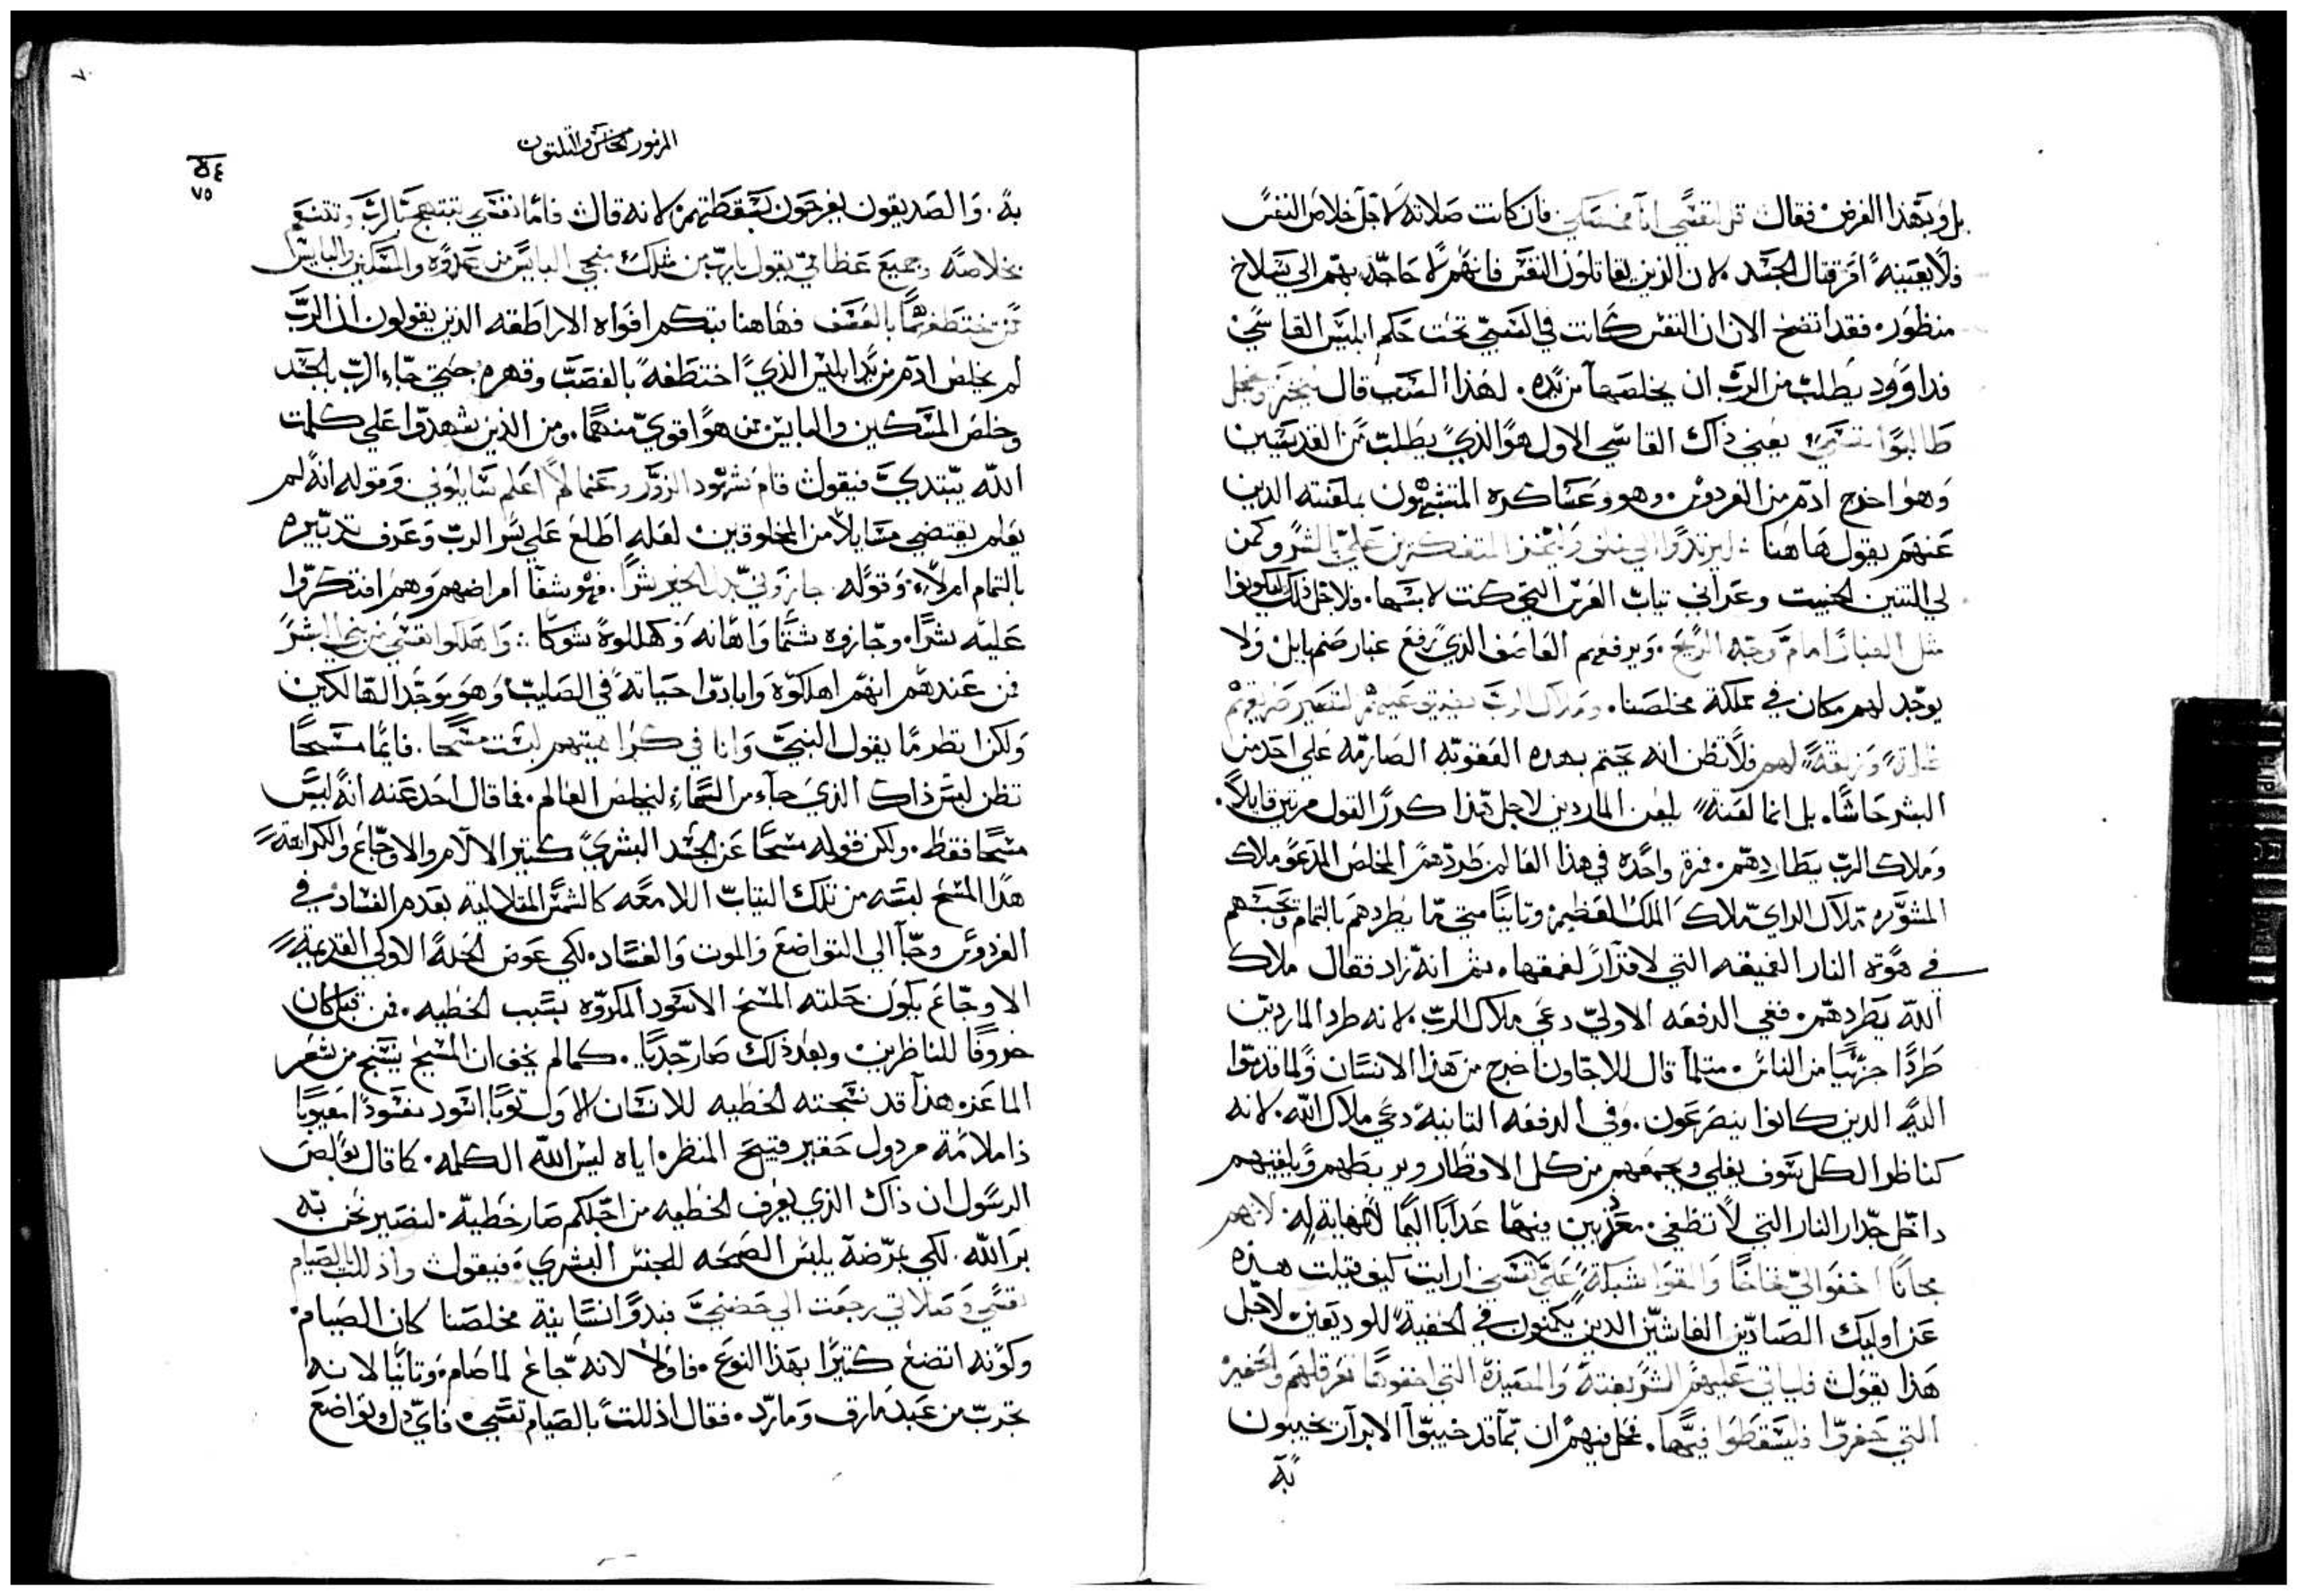 بل وبهذا الغرض فقال قل لنفسي انا مخلصكي فان كانت صلاته لاجل خلاص النفس
فلا يعيبنه امر قتال الجسد لان الذين يقاتلون النفس فانهم لا حاجه بهم الي سلاح
منظور فقد اتضح الان ان النفس كانت في السبي تحت حكم ابليس القاسي
فداوود يطلب من الرب ان يخلصها من يده لهذا السبب قال يخز ويخجل
طالبوا نفسي يعني ذاك القاسي الاول هو الذي يطلب من القديسين
وهو اخرج ادم من الفردوس وهو وعساكره المتشبهون بلعنته الدين
عنهم يقول هاهنا ليرتدوا الي خلف وليخز المتفكرين علي بالشر وكمن
لي التنين الخبيث وعراني تياب العرس التي كنت لابسها فلاجل ذلك ليكونوا
مثل الغبار امام وجه الريح ويرفعهم العاصف الذي رفع غبار صنم بابل ولا
يوجد لهم مكان في مملكة مخلصنا وملاك الرب لتصير طريقهم
ظلمة وزلقة لهم فلا تظن انه يحتم بهده العقوبه الصارمه علي احد من
البشر حاشا بل انما لعنة يلعن الماردين لاجل هذا كرر القول مرتين قايلا
وملاك الرب يطاردهم فمرة واحده في هذا العالم طردهم المخلص المدعو ملاك
المشوره ملاك الراي ملاك الملك العظيم وتانيا متي ما يطردهم بالتمام ويحبسهم
في هوته النار العميقه التي لا قرار لعمقها ثم انه زاد فقال ملاك
الله يطردهم ففي الدفعه الاولي دعي ملاك الرب لانه طرد الماردين
طردا جزييا من الناس متلما قال للاجاون اخرج من هذا الانسان ولما قدموا
اليه الدين كانوا ينصرعون وفي الدفعه التانية دعي ملاك الله لانه
كناظر الكل سوف يغلي ويجمعهم من كل الاقطار ويربطهم ويلقيهم
داخل جدار النار التي لا تطفي معذبين فيها عدابا اليما لا نهاية له لانهم
مجانا اخفوا لي فخاخا والقوا شبكة علي نفسي ارايت كيف قيلت هذه
عن اوليك الصيادين الغاشين الدين يكمنون في الخفية للوديعين لاجل
هذا يقول فلياتي عليهم الشر بغتة والمصيدة التي اخفوها تعرقلهم والحفير
التي حفروا فليسقطوا فيها فحل فيهم ان بما قد خيبوا الابرار يخيبون
به
المزمور الخامس والتلتون
٥٤
٧٥
به والصديقون يفرحون بسقطتهم لانه قال فاما نفسي تبتهج بالرب وتتنعم
بخلاصه وجميع عظامي يقول يا رب من مثلك منجي البايس من عدوه والمسكين والبايس
ممن يختطفهما بالعسف فهاهنا يتبكم افواه الاراطقه الذين يقولون ان الرب
لم يخلص ادم من يد ابليس الذي اختطفه بالغصب وقهره حتي جاء الرب بالجسد
وخلص المسكين والبايس ممن هو اقوي منهما ومن الذين شهدوا علي كلمت
الله يبتدي فيقول قام شهود الزور وعما لا اعلم سايلوني وقوله انه لم
يعلم يقتضي مسايلا من المخلوقين لعله اطلع علي سر الرب وعرف تدبيره
بالتمام ام لا وقوله جازوني بدل الخير شرا فهو شفا امراضهم وهم افتكروا
عليه شرا وجازوه شتما واهانه وكللوه شوكا واهلكوا نفسي من بني البشر
فمن عندهم انهم اهلكوه وابادوا حياته في الصليب وهو يوجد الهالكين
ولكن انظر ما يقول النبي وانا في كراهيتهم لبست مسحا فايما مسحا
تظن لبس ذاك الذي جاء من السماء ليخلص العالم فما قال احد عنه انه لبس
مسحا فقط ولكن قوله مسحا عن الجسد البشري كتير الالام والاوجاع والكراهة
هذا المسح لبسه من تلك التياب اللامعه كالشمس المتلالية بعدم الفساد في
الفردوس وجا الي التواضع والموت والفساد لكي عوض الحلة الاولي القديمة
الاوجاع يكون حلته المسح الاسود المكروه بسبب الخطيه فمن قبل كان
خروفا للناظرين وبعد ذلك صار جديا كما لم يخف ان المسيح ينسج من شعر
الماعزه هذا قد نسجته الخطيه للانسان الاول توبا اسود مقسودا معيوبا
ذا ملامة مردول حقير قبيح المنظر اياه لبس الله الكلمه كما قال بولص
الرسول ان ذاك الذي لم يعرف الخطيه من اجلكم صار خطية لنصير نحن به
بر الله لكي بمرضه يلبس الصحه للجنس البشري فيقول واذللت بالصيام
نفسي وصلاتي رجعت الي حضني فبدو انسانية مخلصنا كان الصيام
وكونه اتضع كتيرا بهذا النوع فاولا لانه جاع لما صام وتانيا لانه
تجرب من عبد مارق ومارد فقال اذللت بالصيام نفسي فاي دل وتواضع